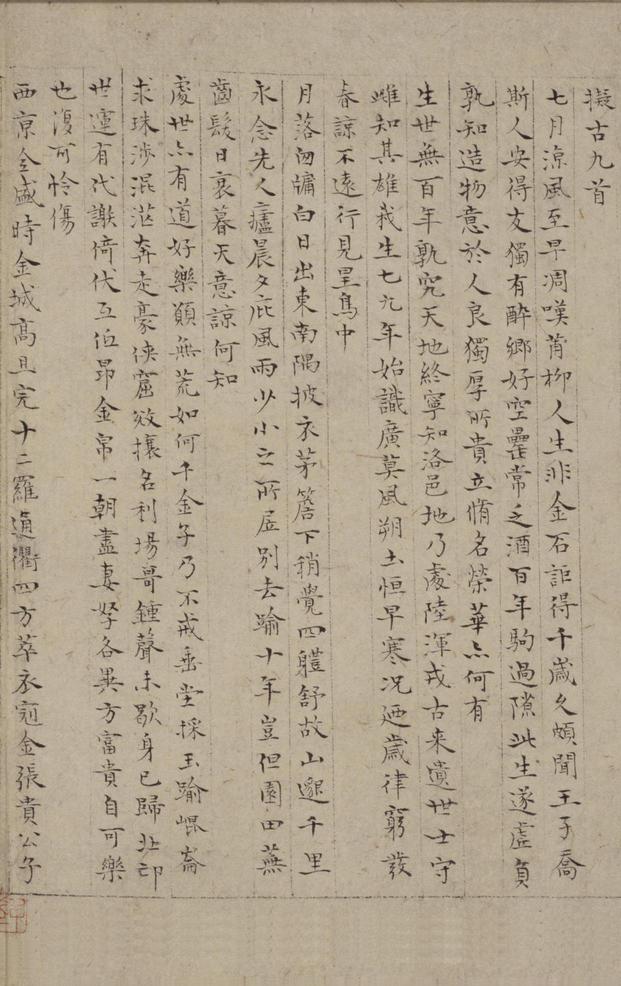 擬古九首
七月涼風至早凋嘆蒲柳人生非金石詎得千歲久頗聞王子喬
斯人安得友獨有醉鄉好空罍常乏酒百年駒過隙此生遂虛負
孰知造物意於人良獨厚所貴立脩名榮華亦何有
生世無百年孰究天地終寧知洛邑地乃處陸渾戎古来遺世士守
雌知其雄我生七九年始識廣莫風朔土恒早寒況廼歲律窮發
春諒不遠行見星鳥中
月落囪牗白日出東南隅披衣茅簷下稍覺四軆舒故山邈千里
永念先人廬晨夕庇風雨少小之所居別去踰十年豈但園田蕪
齒髮日衰暮天意諒何知
處世亦有道好樂顧無荒如何千金子乃不戒垂堂採玉踰崐崙
求珠涉混茫奔走豪俠窟攽攘名利場哥鍾聲未歇身已歸北邙
世運有代謝倚伏互伍昂金帛一朝盡妻孥各異方富貴自可樂
也復可怜傷
西京全盛時金城高且完十二羅通衢四方萃衣冠金張貴公子